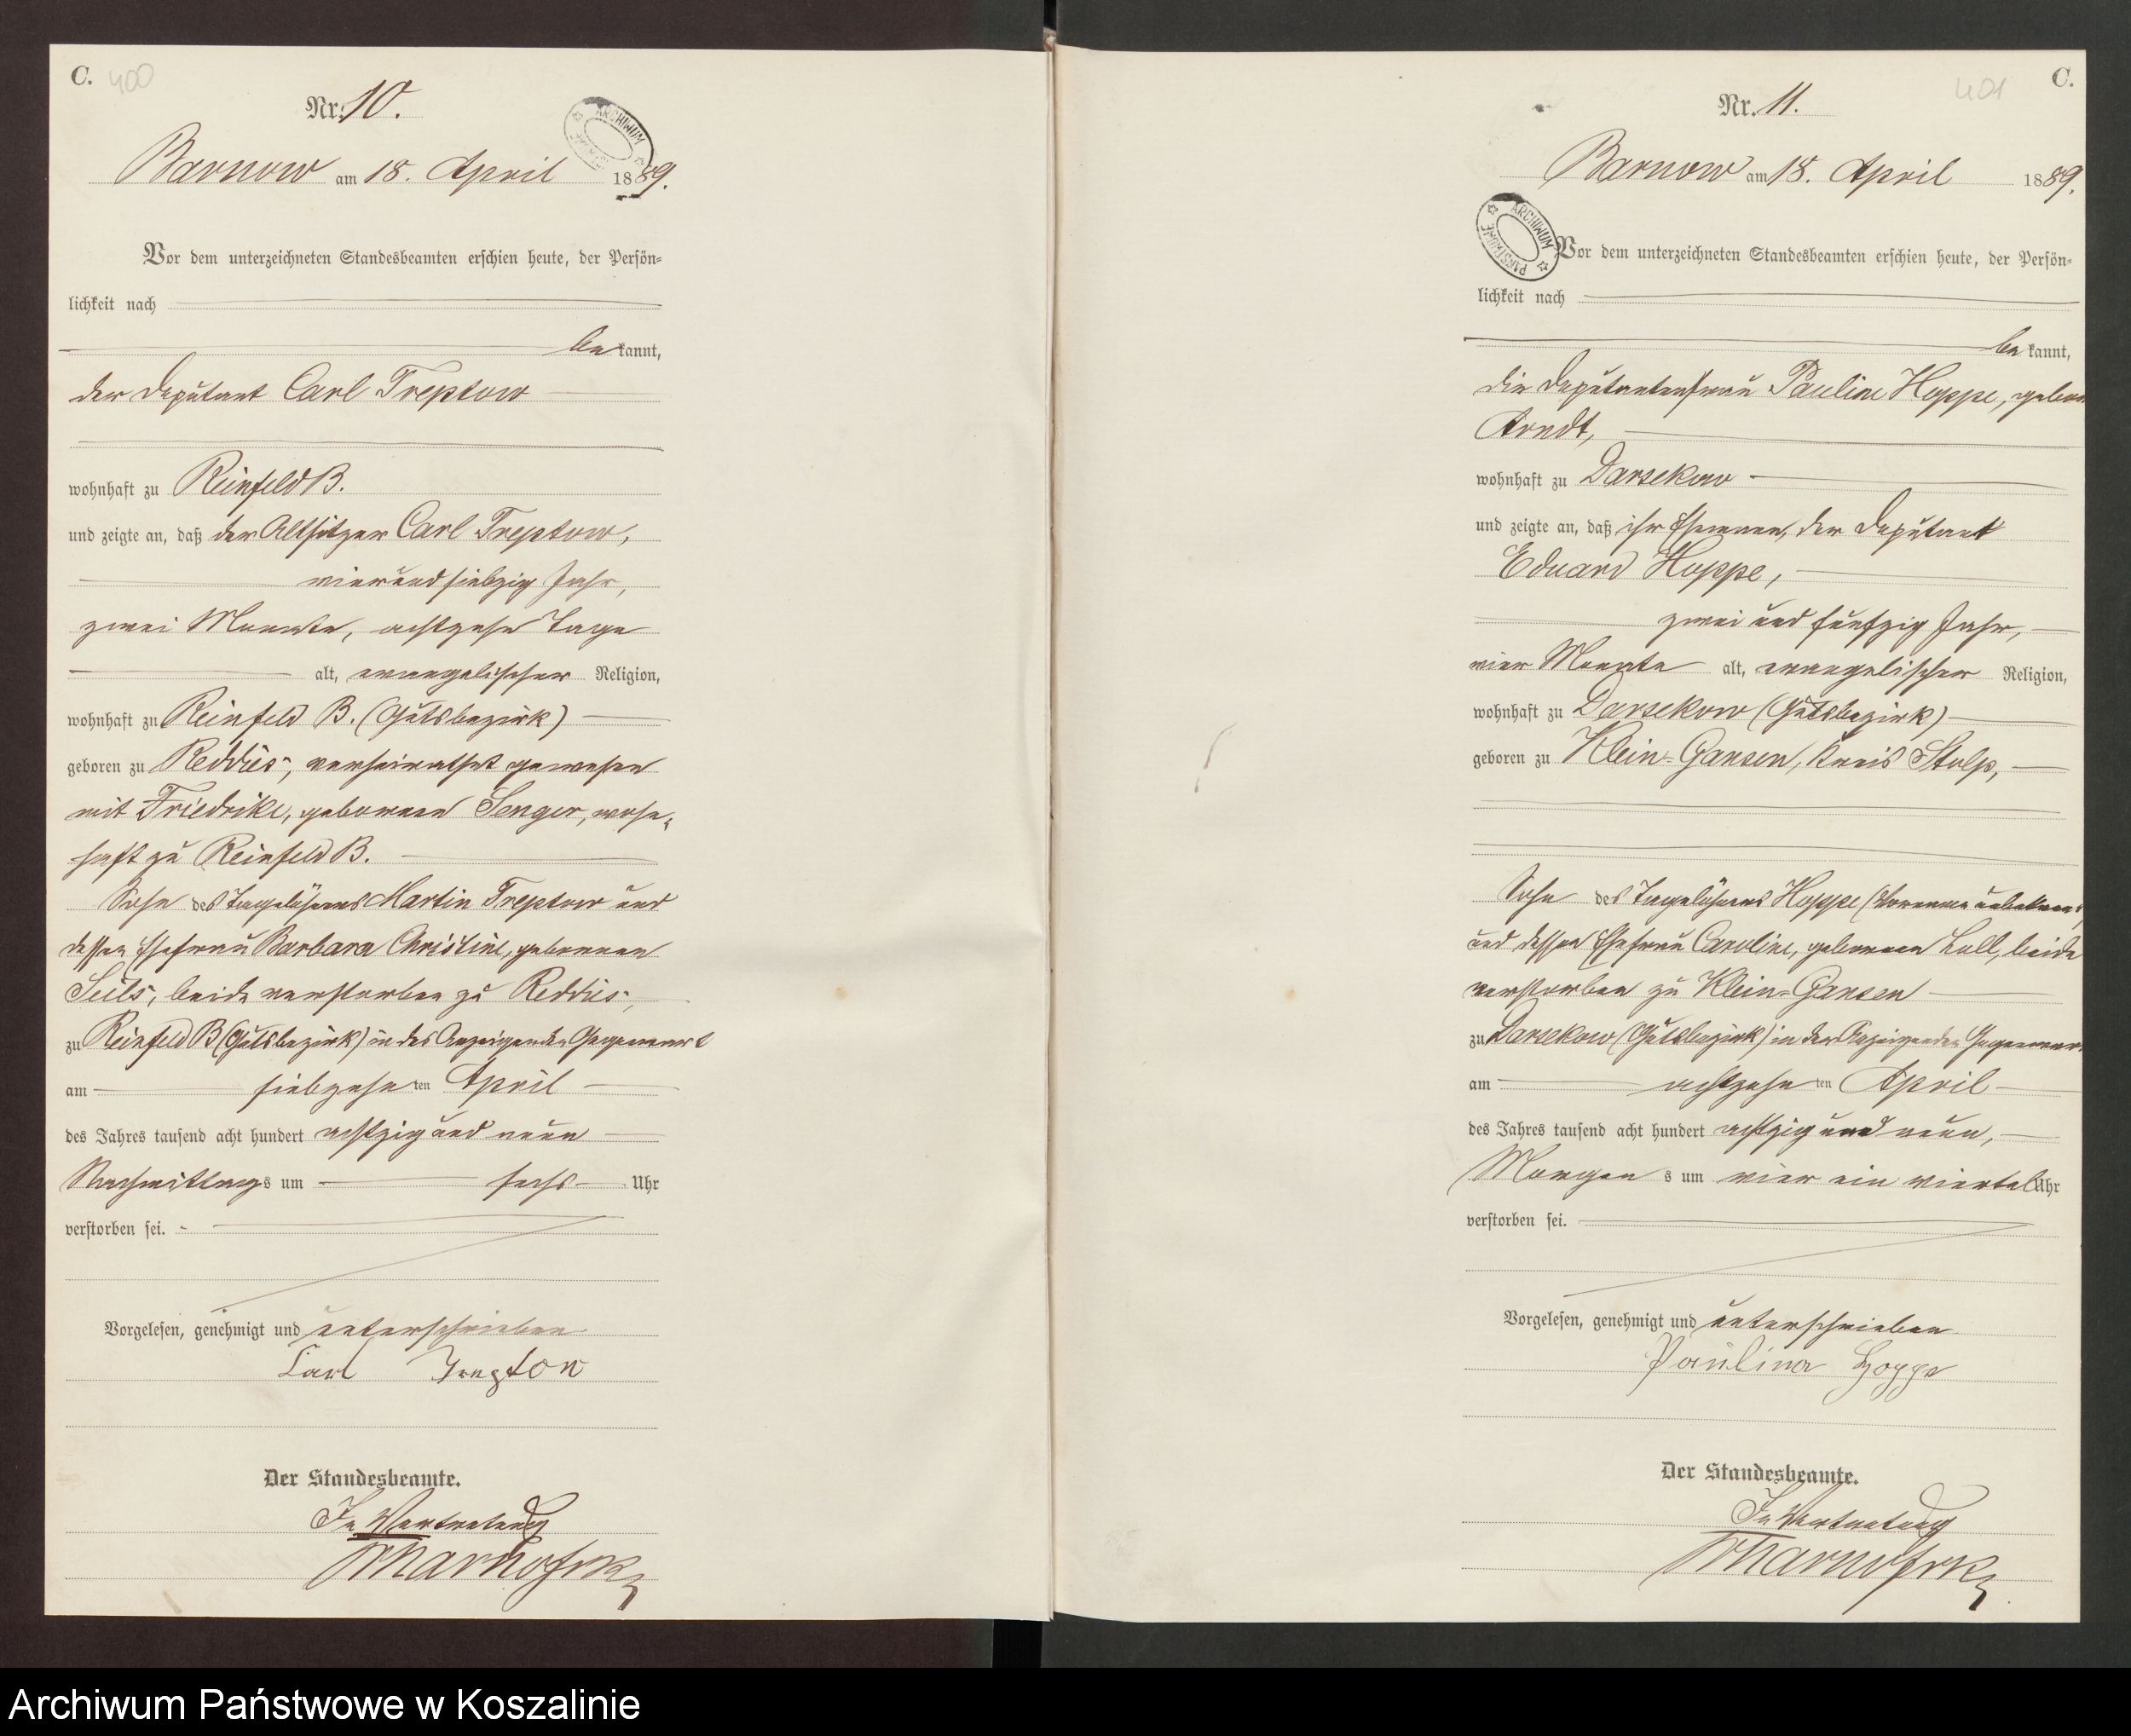 C. 400
Nr. 10.
ARCHIWUM
Barnow am 18. April 1889.
Vor dem unterzeichneten Standesbeamten erschien heute, der Persön-
lichkeit nach
bekannt,
der Deputant Carl Treptow
wohnhaft zu Reinfeld B.
und zeigte an, daß der Altsitzer Carl Treptow,
vierundsiebzig Jahr,
zwei Monate, achtzehn Tage
alt, evangelischer Religion,
wohnhaft zu Reinfeld B. (Gutsbezirk)
geboren zu Reddies, verheirathet gewesen
mit Friedrike, geborenen Senger, wohn-
haft zu Reinfeld B.
Sohn des Tagelöhners Martin Treptow und
dessen Ehefrau Barbara Christine, geborenen
beide verstorben zu Reddies,
zu Reinfeld B (Gutsbezirk) in des Anzeigenden Gegenwart
am siebzehnten April
des Jahres tausend acht hundert achtzig und neun
Nachmittags um sechs Uhr
verstorben sei.
Vorgelesen, genehmigt und unterschrieben
Carl Trepton
Der Standesbeamte.
In Vertretung
C. 401
Nr. 11.
Barnow am 18. April 1889.
ARCHIWUM PAŃSTWOWE
Vor dem unterzeichneten Standesbeamten erschien heute, der Persön-
lichkeit nach
bekannt,
die Deputantenfrau Pauline Hoppe, gebore
Arndt,
wohnhaft zu Darsekow
und zeigte an, daß ihr Ehemann, der Deputant
Eduard Hoppe,
zwei und fünfzig Jahr,
vier Monate alt, evangelischer Religion,
wohnhaft zu Darsekow (Gutsbezirk)
geboren zu Klein-Gansen, Kreis Stolp,
Sohn des Tagelöhners Hoppe (Vorname unbekannt)
und dessen Ehefrau Caroline, geborenen Lall, beide
verstorben zu Klein-Gansen
zu Darsekow (Gutsbezirk) in der Anzeigenden Gegenwar
am achtzehnten April
des Jahres tausend acht hundert achtzig und neun,
Morgens um vier ein viertel Uhr
verstorben sei.
Vorgelesen, genehmigt und unterschrieben
Paulina Hoppe
Der Standesbeamte.
In Vertretung
Archiwum Państwowe w Koszalinie